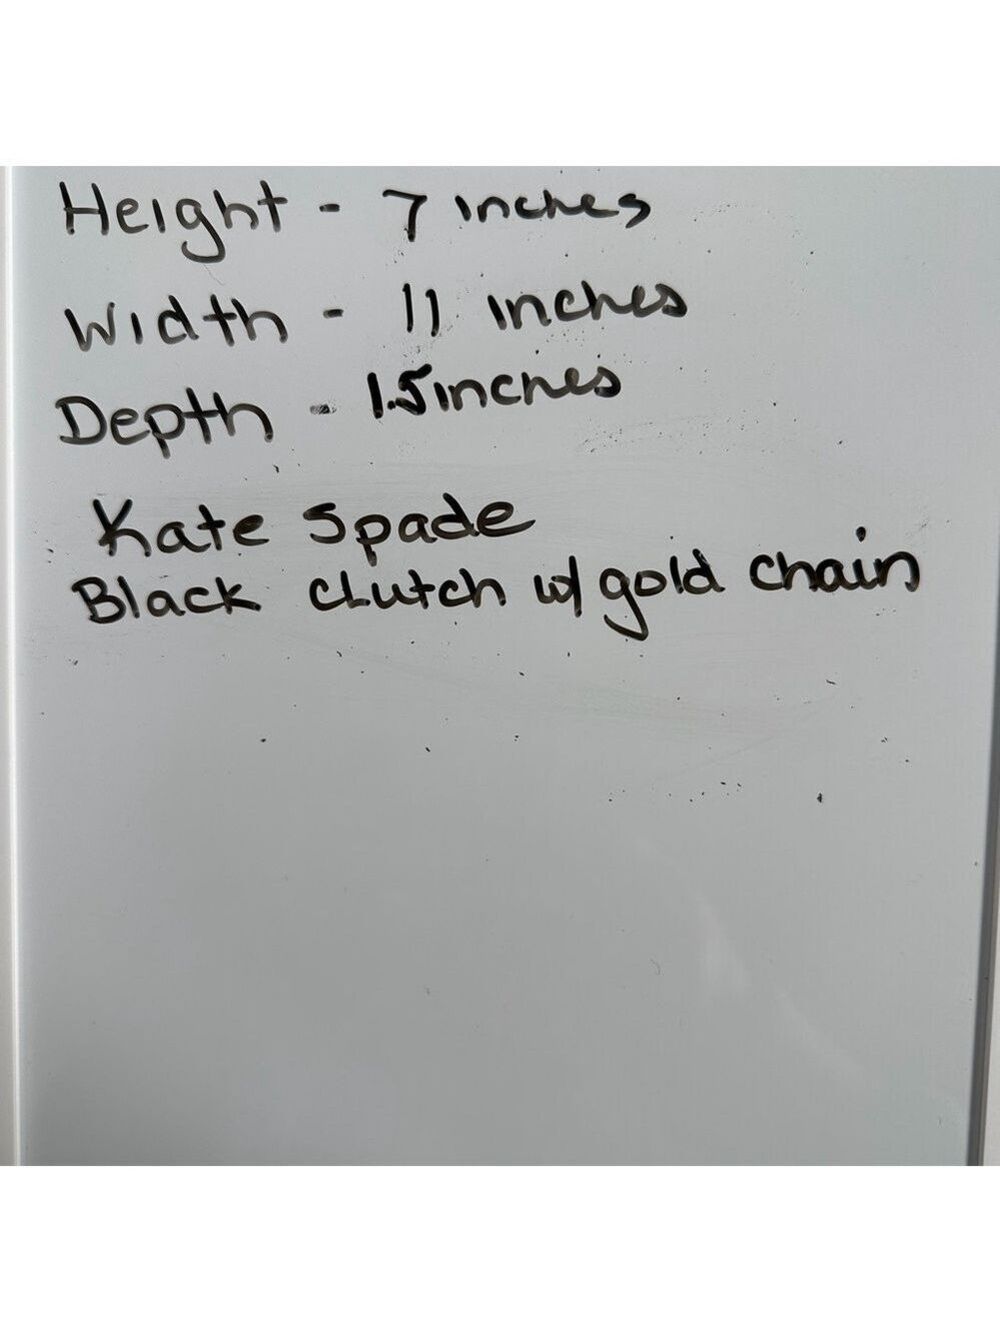 Height - 7 inches
Width - 11 inches
Depth - 1.5 inches
Kate Spade
Black clutch w/ gold chain